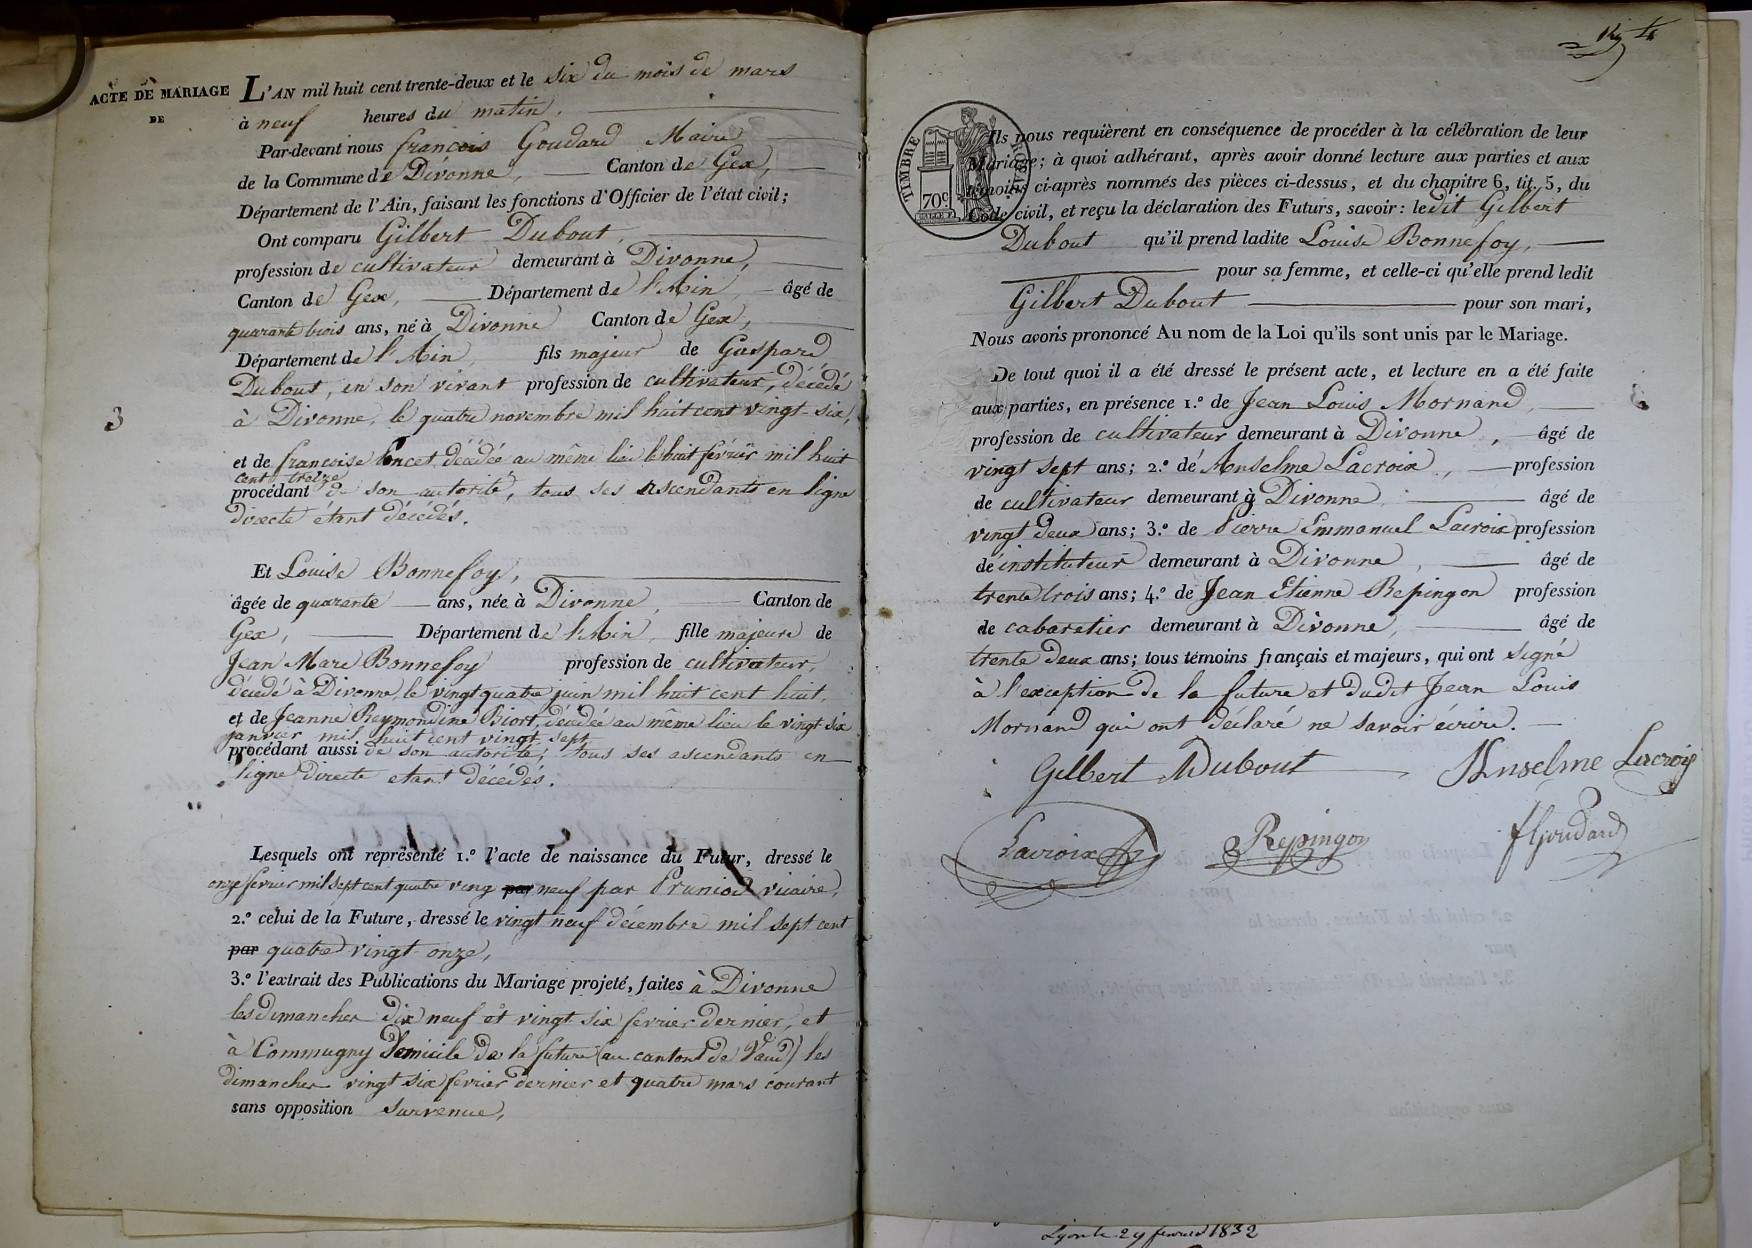 ACTE DE MARIAGE
DE
L'AN mil huit cent trente-deux et le six du mois de mars
à neuf heures du matin.
Par-devant nous françois Goudard Maire
de la Commune de Divonne, Canton de Gex,
Département de l'Ain, faisant les fonctions d'Officier de l'état civil;
Ont comparu Gilbert Dubout,
profession de cultivateur demeurant à Divonne,
Canton de Gex, Département de l'Ain, âgé de
quarante trois ans, né à Divonne Canton de Gex,
Département de l'Ain, fils majeur de Gaspard
Dubout, en son vivant profession de cultivateur, décédé
à Divonne, le quatre novembre mil huit cent vingt-six,
3
et de françoise Poncet, décédée au même lieu le huit février mil huit
cent treize
procédant de son autorité, tous ses ascendants en ligne
directe étant décédés.
Et Louise Bonnefoy,
âgée de quarante ans, née à Divonne, Canton de
Gex, Département de l'Ain, fille majeure de
Jean Marc Bonnefoy profession de cultivateur,
décédé à Divonne, le vingt quatre juin mil huit cent huit,
et de Jeanne Reymondine Biort, décédée au même lieu le vingt six
janvier mil huit cent vingt sept
procédant aussi de son autorité, tous ses ascendants en
ligne directe étant décédés.
Lesquels ont représenté 1.° l'acte de naissance du Futur, dressé le
onze février mil sept cent quatre ving par neuf par Pruniod vicaire,
2.° celui de la Future, dressé le vingt neuf décembre mil sept cent
par quatre vingt onze,
3.° l'extrait des Publications du Mariage projeté, faites à Divonne
les dimanches dix neuf et vingt six fevrier dernier, et
à Commugny Domicile de la future (au canton de Vaud) les
dimanches vingt six fevrier dernier et quatre mars courant
sans opposition survenue,
TIMBRE ROYAL
70c
Ils nous requièrent en conséquence de procéder à la célébration de leur
Mariage; à quoi adhérant, après avoir donné lecture aux parties et aux
témoins ci-après nommés des pièces ci-dessus, et du chapitre 6, tit. 5, du
Code civil, et reçu la déclaration des Futurs, savoir: ledit Gilbert
Dubout qu'il prend ladite Louise Bonnefoy,
pour sa femme, et celle-ci qu'elle prend ledit
Gilbert Dubout pour son mari,
Nous avons prononcé Au nom de la Loi qu'ils sont unis par le Mariage.
De tout quoi il a été dressé le présent acte, et lecture en a été faite
aux parties, en présence 1.° de Jean Louis Mornand,
profession de cultivateur demeurant à Divonne, âgé de
vingt sept ans; 2.° de Anselme Lacroix, profession
de cultivateur demeurant à Divonne âgé de
vingt deux ans; 3.° de Pierre Emmanuel Lacroix profession
de instituteur demeurant à Divonne, âgé de
trente trois ans; 4.° de Jean Etienne Repingon profession
de cabaretier demeurant à Divonne, âgé de
trente deux ans; tous témoins français et majeurs, qui ont signé
à l'exception de la future et dudit Jean Louis
Mornand qui ont déclaré ne savoir écrire.
Gilbert Dubout Anselme Lacroix
Lacroix Repingon fGoudard
Lyon le 29 février 1832